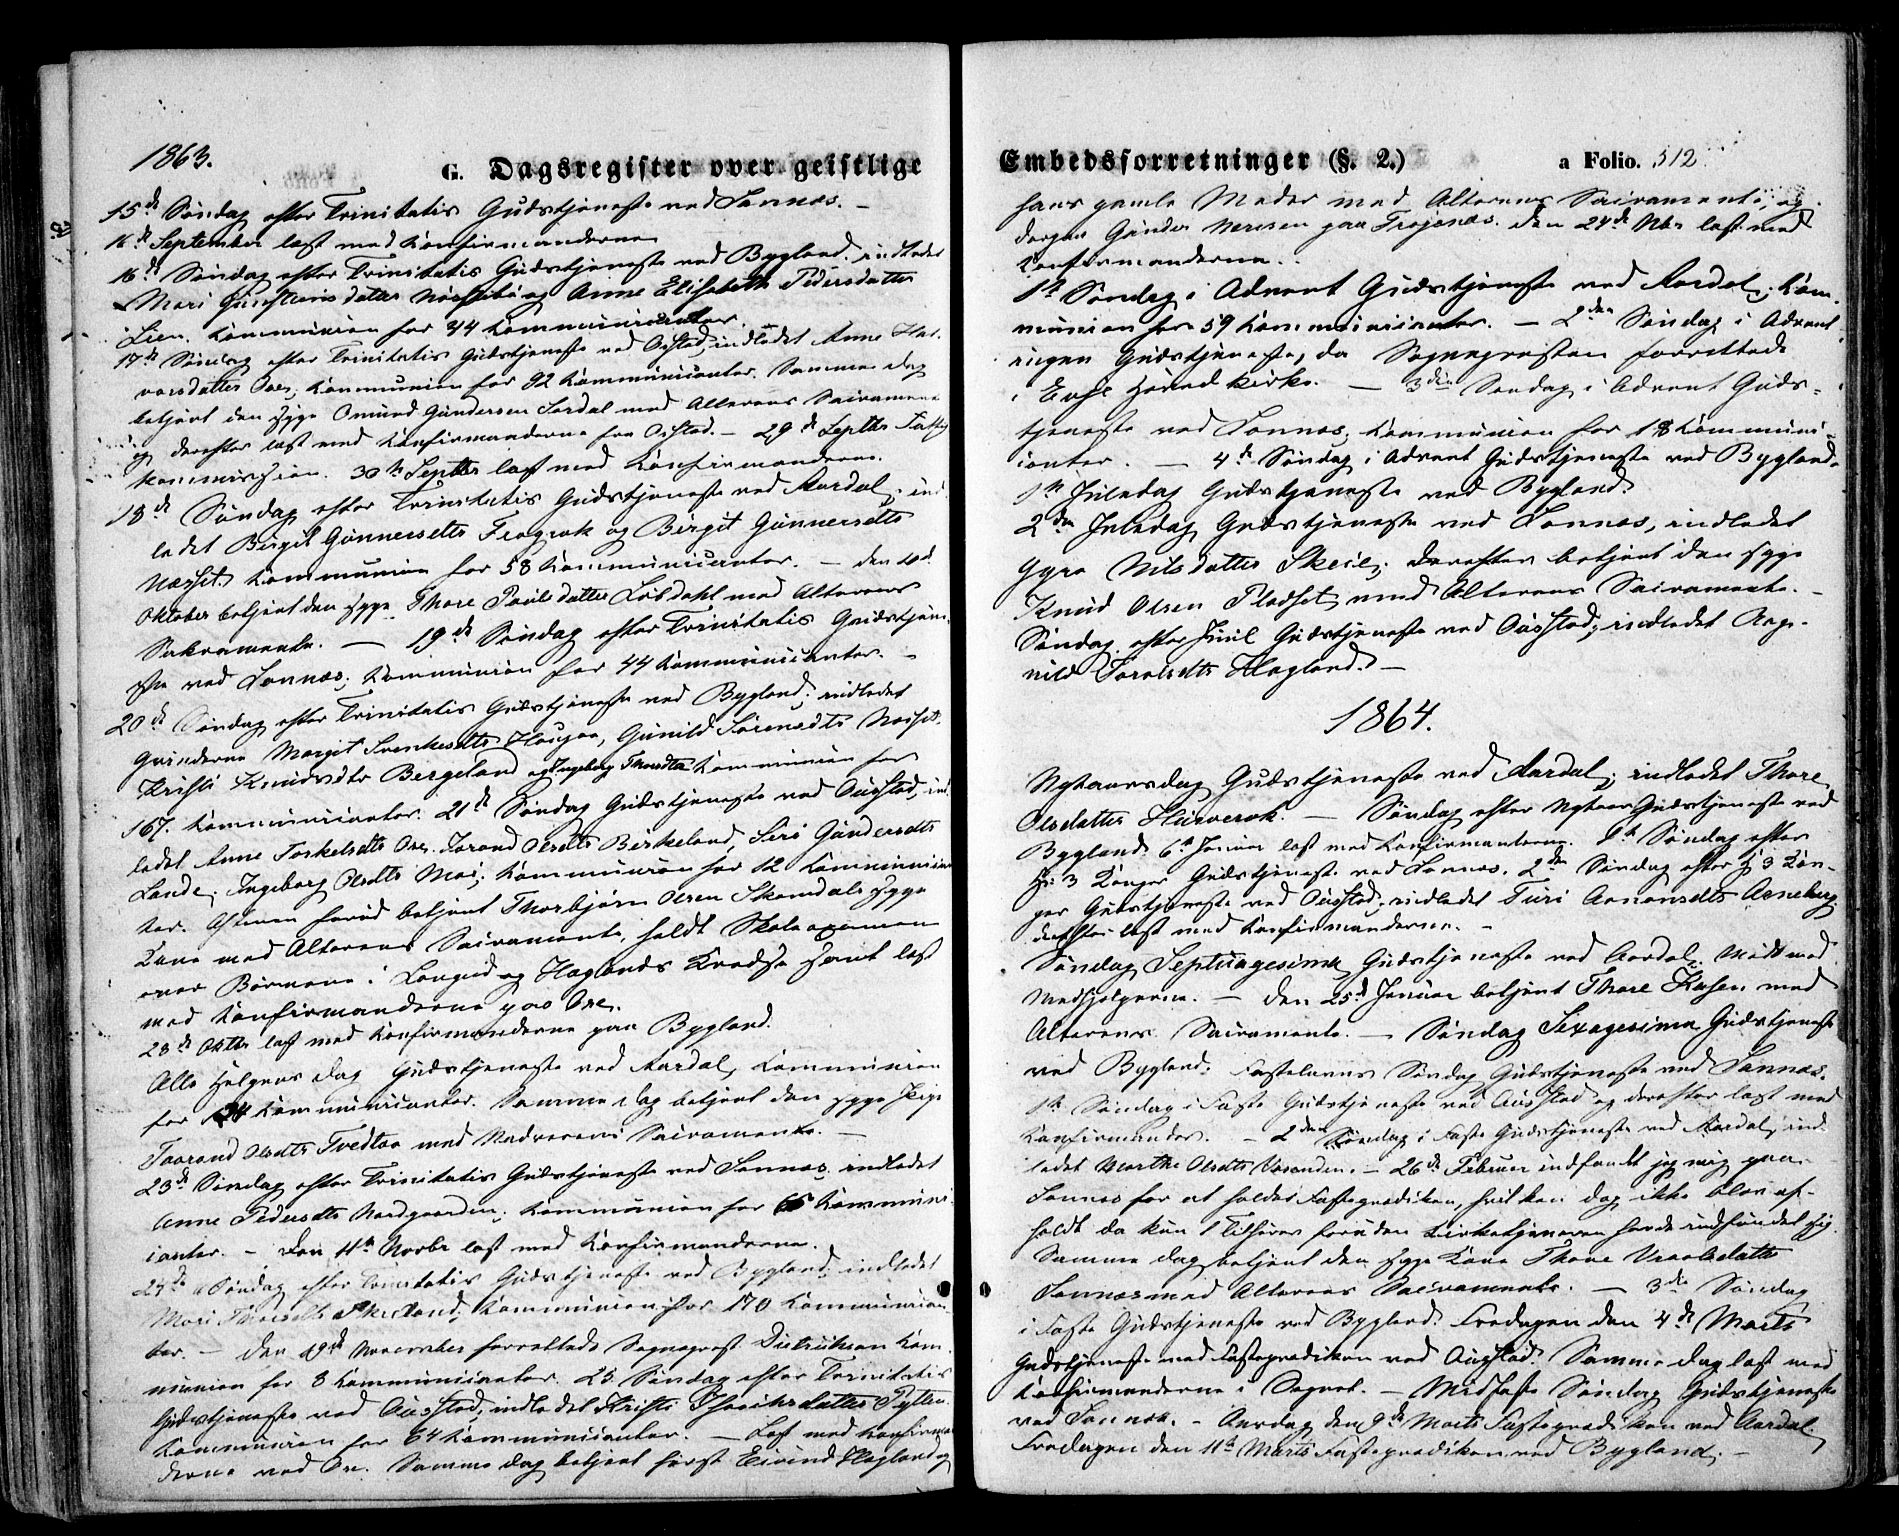 1863.
G. Dagsregister over geistlige
15de Søndag efter Trinitatis Gudstjeneste ved Sannes. –
16de September læst med Konfirmanderne
16de Søndag efter Trinitatis Gudstjeneste ved Bygland. indledet
Mari Gunsteinsdatter og Anne Elisabeth Pedersdatter
Lien. Kommunion for 44 Kommunicanter.
17de Søndag efter Trinitatis Gudstjeneste ved Ousstad; indledet Anne Hal-
vorsdatter Ose; Kommunion for 92 Kommunicanter. Samme dag
betjent den syge Omund Gundersen Sordal med Alterens Sacramente
og derefter læst med Konfirmanderne fra Ousstad. – 29de Septbr Fattig
kommission. 30te Septbr læst med Konfirmanderne.
18de Søndag efter Trinitatis Gudstjeneste ved Aardal; ind-
ledet Birgit Gunnersdtr og Birgit Gunnersdtr
Næsset. Kommunion for 58 Kommunicanter. – den
Oktober betjent den syge Thore Poulsdatter Lobdahl med Alterens
Sakramente. – 19de Søndag efter Trinitatis Gudstjene-
ste ved Sannes; Kommunion for 44 Kommunicanter. –
20de Søndag efter Trinitatis Gudstjeneste ved Bygland; indledet
Qvinderne Margit Svenkesdtr Haugaa, Gunild Sørensdtr Næsset,
Kristi Knudsdtr Bergeland og Ingeborg Thorsdtr Kommunion for
167. Kommunicanter. 21de Søndag Gudstjeneste ved Ousstad, ind-
ledet Anne Torkelsdtr Ose. Jorand Olsdtr Birkeland, Siri Gundersdtr
Lande, Ingeborg Olsdtr Moi; Kommunion for 12 Kommunican-
ter. Aftenen forud betjent Thorbjørn Olsen Skomdals syge
Kone med Alterens Sacramente, holdt Skoleexamen
over Børnene i Longerud og Haglands Kreds samt læst
med Konfirmanderne paa Ose.
28de Oktbr læst med Konfirmanderne paa Bygland.
Alle Helgens dag Gudstjeneste ved Aardal, Kommunion
for 24 Kommunicanter. Samme dag betjent den syge Pige
Taarand Olsdtr Tvedtaa med Nadverens Sacramente. –
23de Søndag efter Trinitatis Gudstjeneste ved Sannes. indledet
Anne Pedersdtr Nordgaarden; Kommunion for 66 Kommuni-
canter. – Den 11te Novbr læst med Konfirmanderne.
24de Søndag efter Trinitatis Gudstjeneste ved Bygland, indledet
Mari Skeiland; Kommunion for 170 Kommunican-
ter. – den 19de November forrettede Sognepræst Dietrichson Kom-
munion for 8 Kommunicanter. 25 Søndag efter Trinitatis
Gudstjeneste ved Ousstad; indledet Kristi datter
Kommunion for 64 Kommunicanter. – Læst med Konfirman-
derne ved Ose. Samme dag betjent først Eivind Hagland og
Embedsforretninger (§. 2.)
a Folio. 312
hans gamle Moder med Alterens Sacramente, og
dernæst Gunder paa Frøysnæs. den 24de Nbr læst med
Konfirmanderne.
1te Søndag i Advent Gudstjeneste ved Aardal. Kom-
munion for 59 Kommunicanter. – 2den Søndag i Advent
ingen Gudstjeneste, da Sognepræsten forrettede
i Evje Hoved kirke. – 3die Søndag i Advent Guds-
tjeneste ved Sannes, Kommunion for 18 Kommuni-
canter. – 4de Søndag i Advent Gudstjeneste ved Bygland.
1te Juledag Gudstjeneste ved Bygland.
2den Juledag Gudstjeneste ved Sannes, indledet
Gyro Nilsdatter Skeie; derefter betjent den syge
Knud Olsen Pladset med Alterens Sacramente. –
Søndag efter Juul Gudstjeneste ved Ousstad; indledet Rag-
nild Taraldsdtr Hagland. –
1864.
Nytaarsdag Gudstjeneste ved Aardal; indledet Thore
Olsdatter – Søndag efter Nytaar Gudstjeneste ved
Bygland. 6te Januar læst med Konfirmanterne. 1te Søndag efter
H: 3 Konger Gudstjeneste ved Sannes. 2den Søndag efter H 3 Kon-
ger Gudstjeneste ved Ousstad; indledet Turi Aanonsdtr
derefter læst med Konfirmanderne. –
Søndag Septuagesima Gudstjeneste ved Aardal. Mødt med
Medhjælperne. – Den 25de Januar betjent Thore med
Alterens Sacramente. – Søndag Sexagesima Gudstjeneste
ved Bygland. Fastelavns Søndag Gudstjeneste ved Sannes.
1te Søndag i Faste Gudstjeneste ved Ousstad og derefter læst med
Konfirmander. – 2den Søndag i Faste Gudstjeneste ved Aardal, ind-
ledet Marthe Olsdtr Vasenden. – 26de Februar indfandt jeg mig paa
Sannes for at holde Fasteprædiken, hvilken dog ikke blev af-
holdt da kun 1 Tilhører foruden Kirketjeneren havde indfundet sig.
Samme dag betjent den syge Kone Thone datter
Sannes med Alterens Sacramente. – 3die Søndag
i Faste Gudstjeneste ved Bygland. Fredagen den 4de Marts
Gudstjeneste med Fasteprædiken ved Ousstad. Samme dag læst med
Konfirmanderne i Sognet. – Midfaste Søndag Gudstjeneste
ved Sannes. – Onsdag den 9de Marts Fasteprædiken ved Aardal.
Fredagen den 11te Marts Fasteprædiken ved Bygland. –